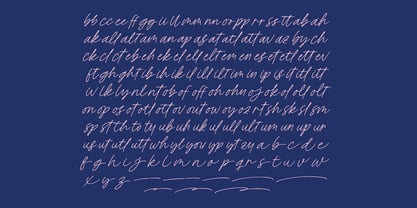 bb cc ee ff gg ii ll mm nn or pp rr ss tt ab ah
ak all alt am an ap as at atl att av az by ch
ck cl ct eb eh ek el ell elt em en es et etl ett ev
ft gh ght ib ih ik il ill ilt im in ip is it itl itt
iv lk ly nl nt ob of off oh ohn oj ok ol oll olt
on op os ot otl ott ov out ow oy oz rt sh sk sl sm
sp st th to ty ub uh uk uf ull ult um un up ur
us ut utl utt why yl yp yt zy a b c d e
f g h i j k l m n o p q r s t u v w
x y z